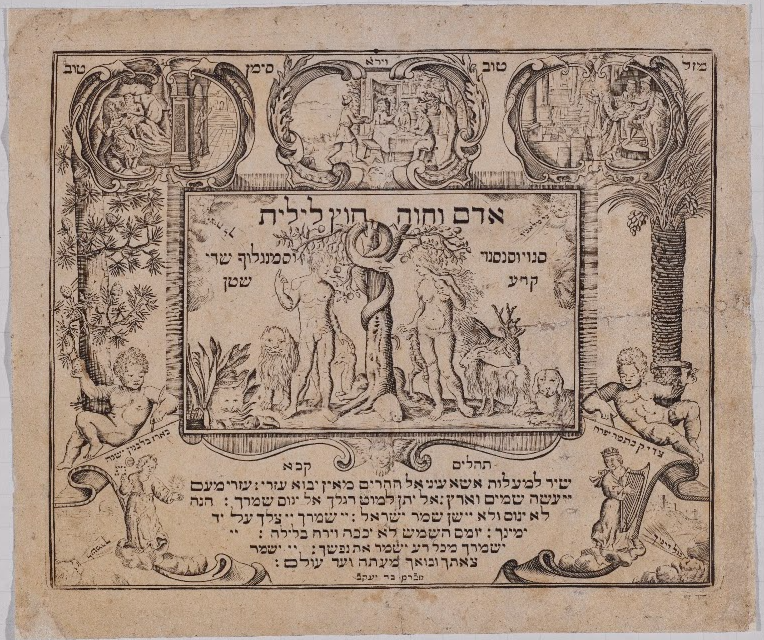 מזל טוב
סימן טוב
וירא
אדם וחוה חוץ לילית
סנוי וסנסנוי וסמנגלוף שרי
קרע שטן
צדיק כתמר יפרח
כארז בלבנון ישגה
תהלים קכא
שיר למעלות אשא עיני אל ההרים מאין יבוא עזרי: עזרי מעם
יי עשה שמים וארץ: אל יתן למוט רגלך אל ינום שמרך: הנה
לא ינום ולא יישן שמר ישראל: יי שמרך יי צלך על יד
ימינך: יומם השמש לא יככה וירח בלילה: יי
ישמרך מכל רע ישמר את נפשך: יי ישמר
צאתך ובואך מעתה ועד עולם:
אברהם בר יעקב